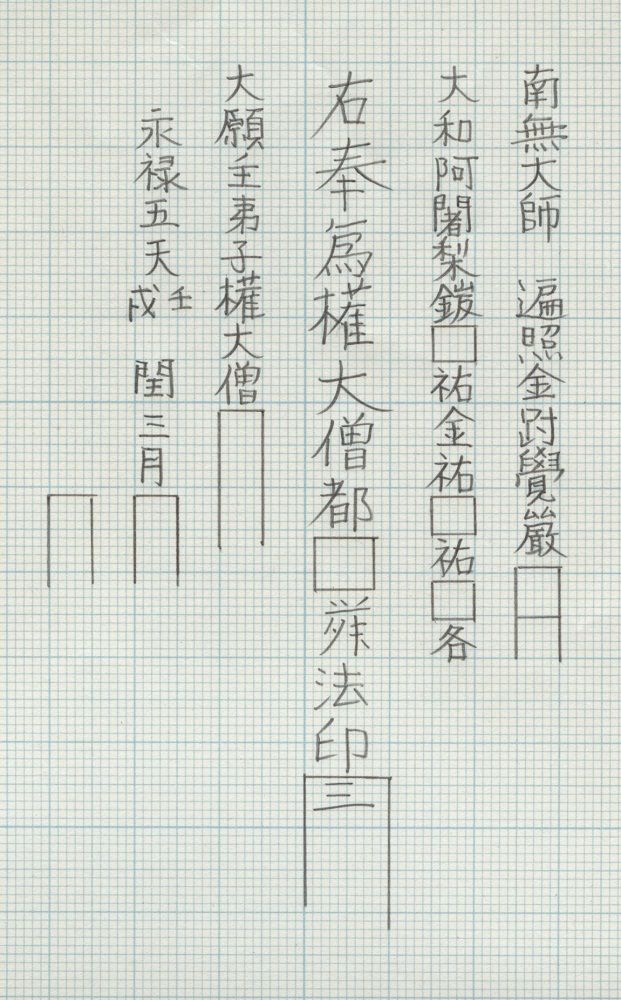 南無大師　遍照金覺巌□
大和阿闍梨鍐□祐金祐□祐□各
右奉為權大僧都□法印三
大願主弟子權大僧
永禄五天壬戌　閏三月